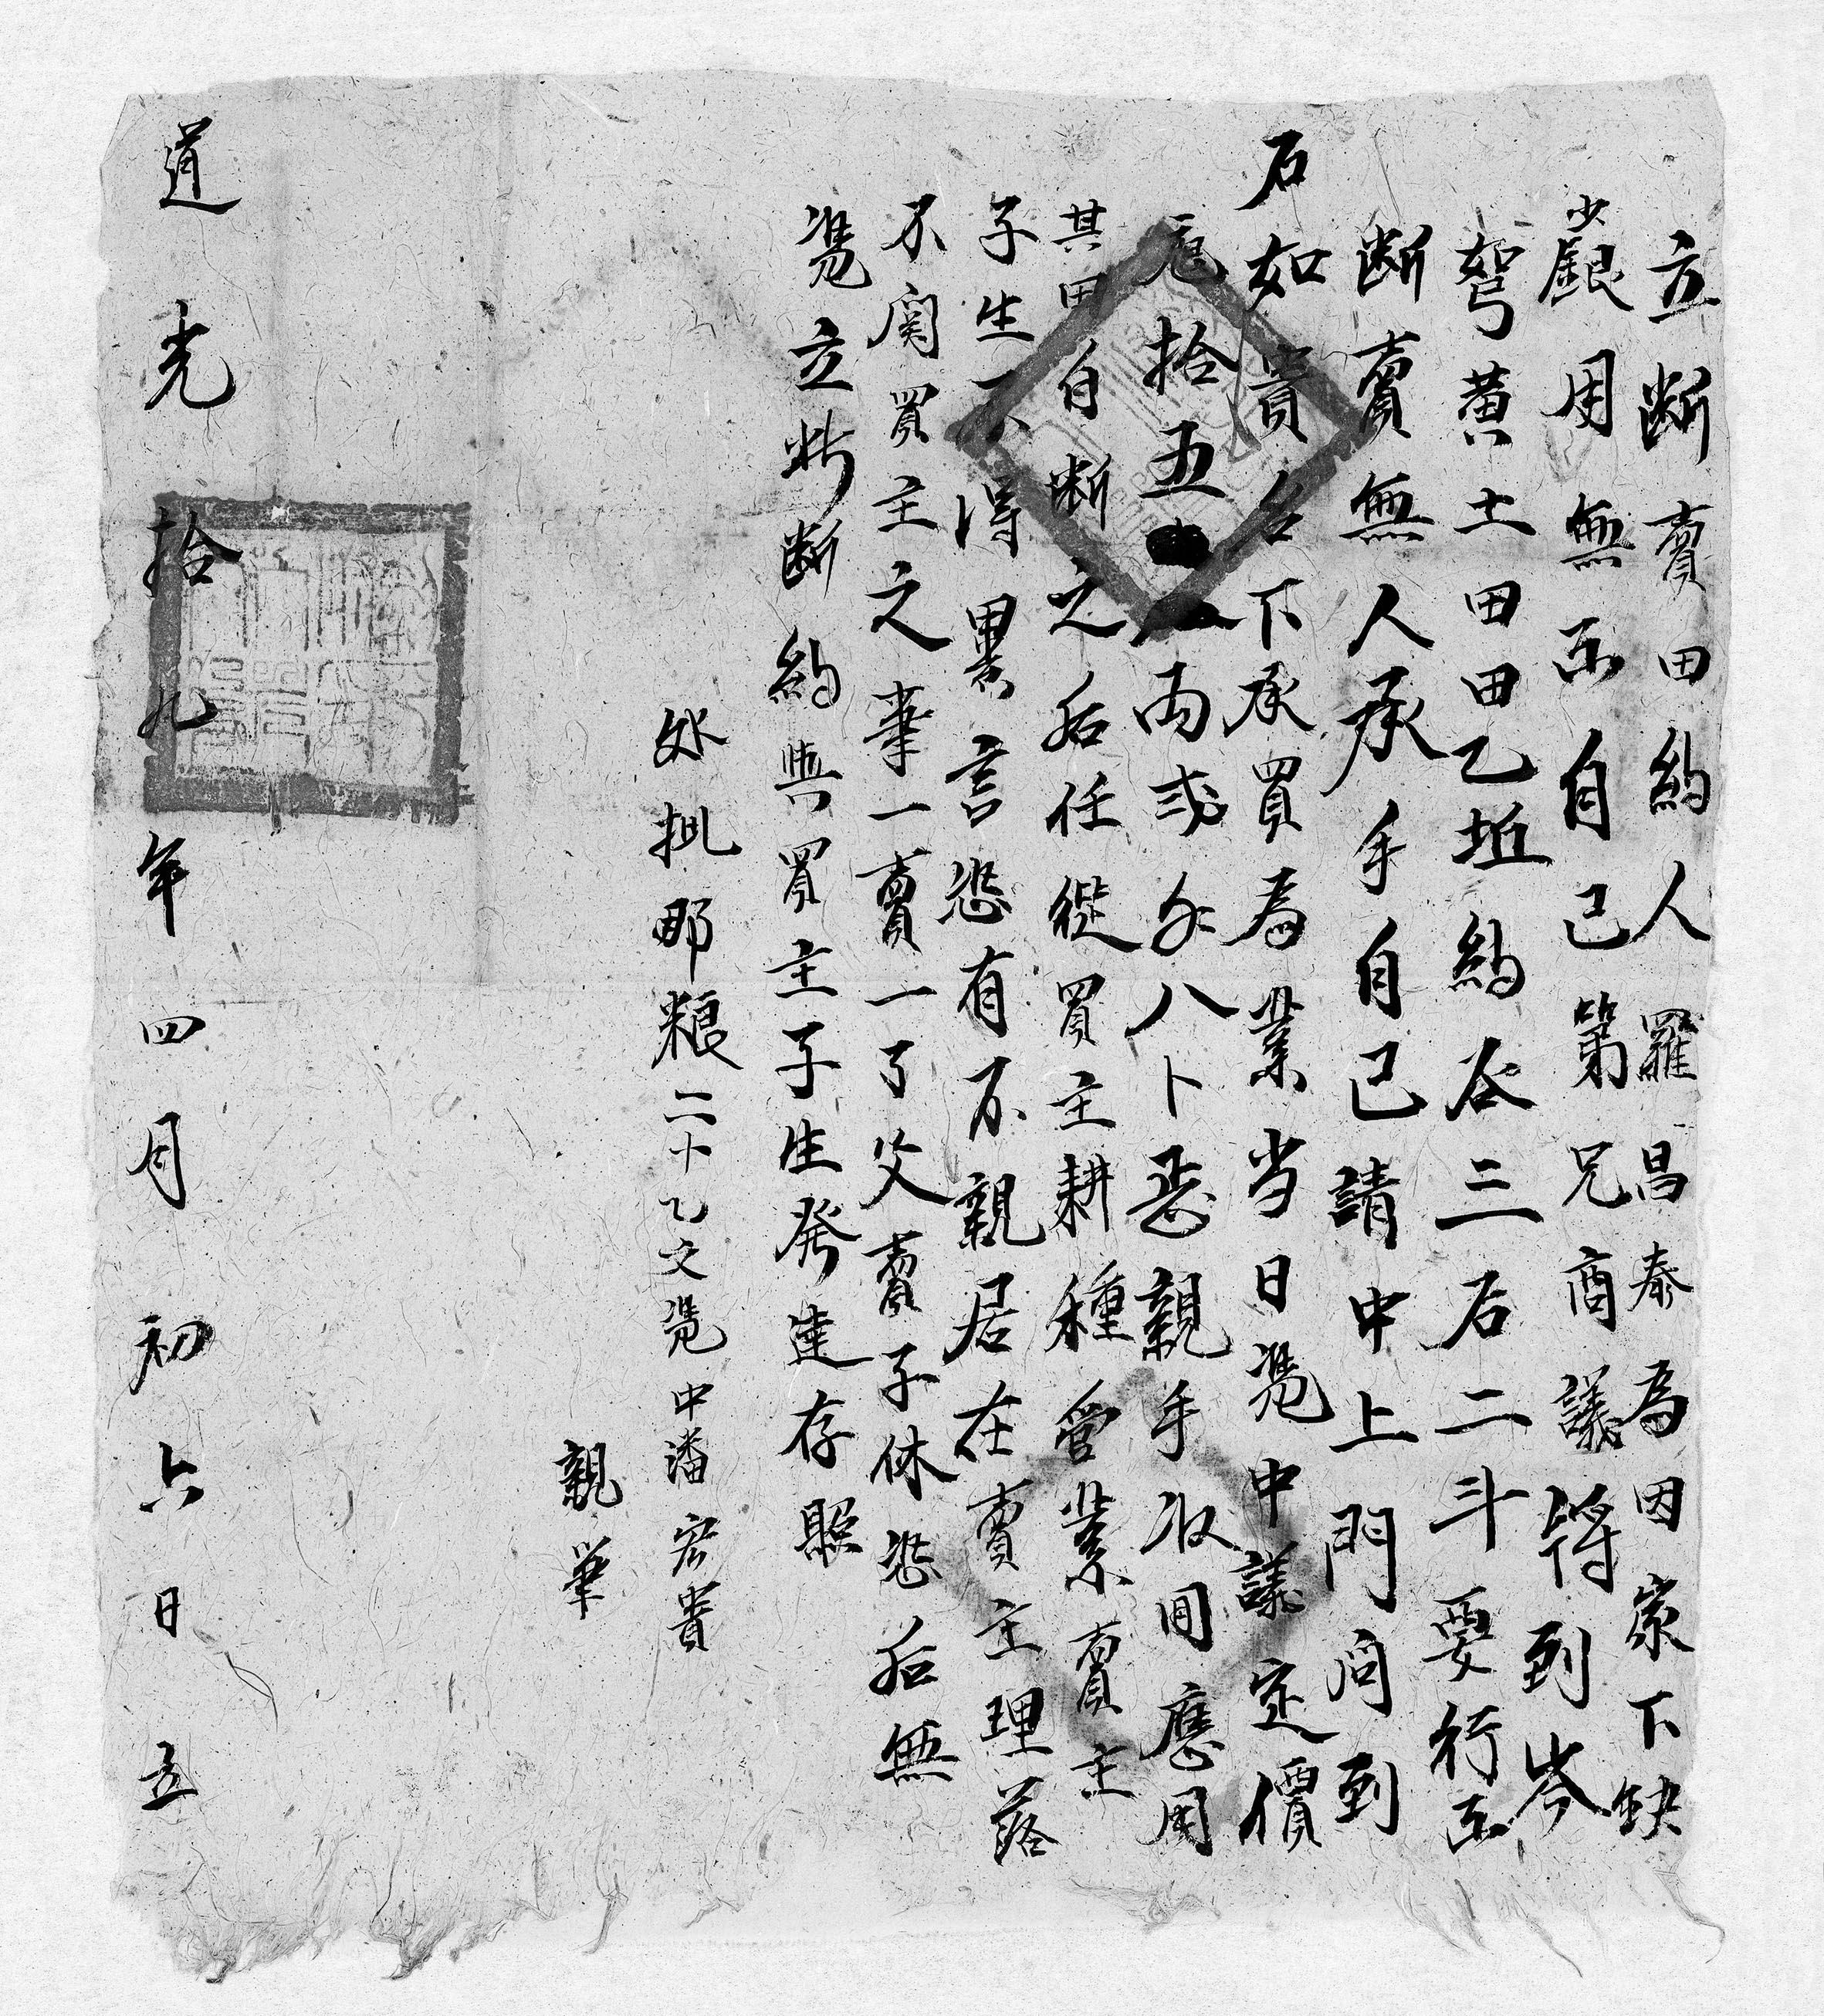 立断賣田約人羅昌泰為因家下缺
少銀用無出自己第兄商議将到岑
弩黄土田田乙坵約谷三石二斗要行出
断賣無人承手自己請中上門问到
石如貴名下承買為業当日凴中議定價
拾五两弍分八卜恶親手收用應用
其田自断之后任從買主耕種管業賣主
子生不得異言恐有不親居在賣主理落
不関買主之事一賣一了父賣子休恐后無
凴立此断約與買主子生発達存照
外批那粮二十乙文凴中潘宏貴
親筆
道光拾九年四月初六日立